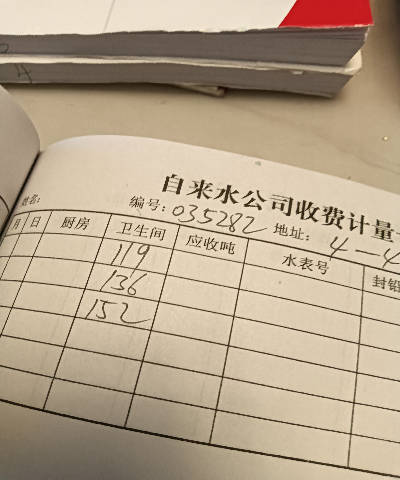 自来水公司收费计量
姓名: 编号: 035282 地址: 4-4
月 日 厨房 卫生间 应收吨 水表号 封铅
119
136
152
4